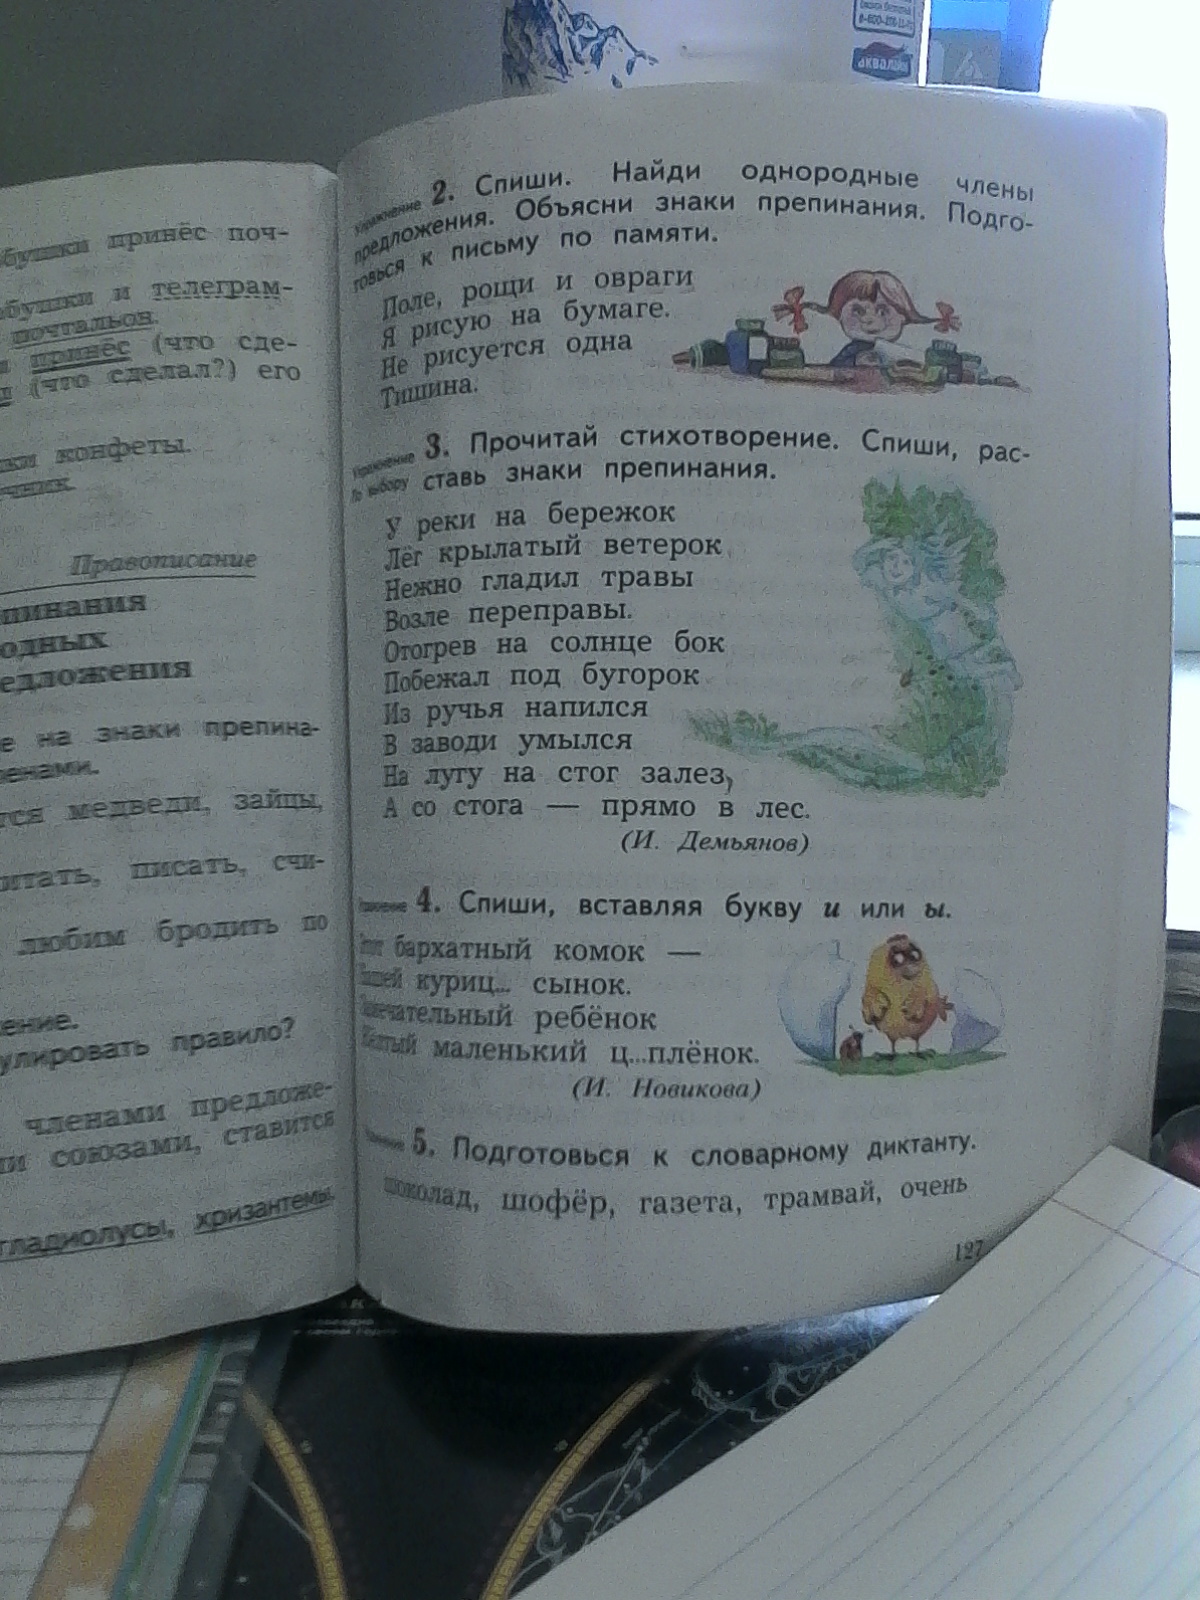 аквалайн
принёс поч-
и телеграм-
почтальон.
принёс (что сде-
(что сделал?) его
конфеты.
Правописание
на знаки препина-
медведи, зайцы,
писать, счи-
любим бродить по
правило?
членами предложе-
союзами, ставится
гладиолусы, хризантемы.
Упражнение 2. Спиши. Найди однородные члены
предложения. Объясни знаки препинания. Подго-
товься к письму по памяти.
Поле, рощи и овраги
Я рисую на бумаге.
Не рисуется одна
Тишина.
Упражнение 3. Прочитай стихотворение. Спиши, рас-
По выбору ставь знаки препинания.
У реки на бережок
Лёг крылатый ветерок
Нежно гладил травы
Возле переправы.
Отогрев на солнце бок
Побежал под бугорок
Из ручья напился
В заводи умылся
На лугу на стог залез,
А со стога — прямо в лес.
(И. Демьянов)
4. Спиши, вставляя букву и или ы.
бархатный комок —
куриц... сынок.
ребёнок
маленький ц...плёнок.
(И. Новикова)
5. Подготовься к словарному диктанту.
шоколад, шофёр, газета, трамвай, очень
127